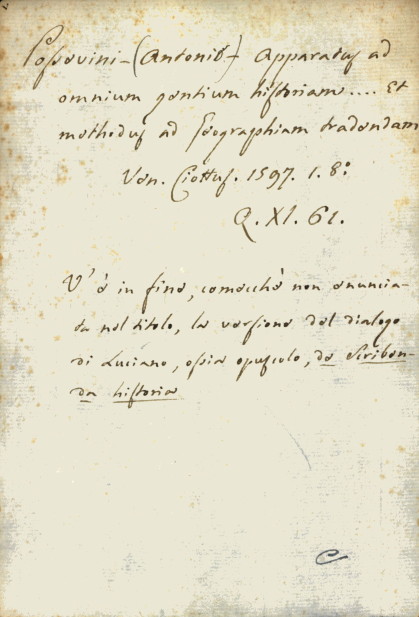 Possevini - (Antonii) Apparatus ad
omnium gentium historiam.... Et
methodus ad Geographiam tradendam
Ven. Ciottus. 1597. 1. 8:
Q. XI. 61.
V' è in fine, comecchè non enuncia-
ta nel titolo, la versione del dialogo
di Luciano, ossia opuscolo, de Scriben-
da historia